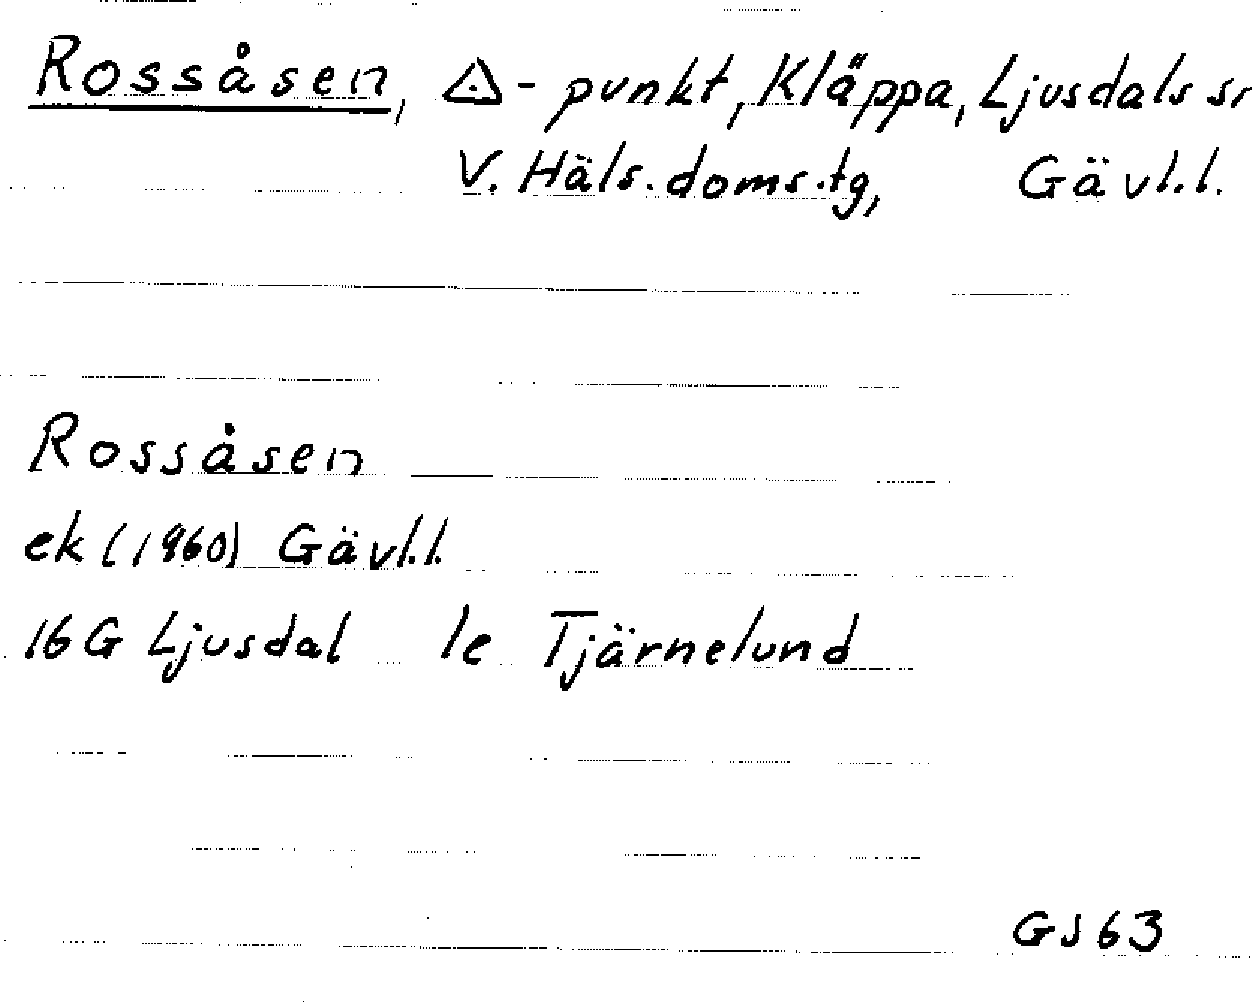 Rossåsen, △-punkt, Kläppa, Ljusdals sn
V. Häls. doms.tg, Gävl.l.
Rossåsen
ek (1960) Gävl.l.
16G Ljusdal 1e Tjärnelund
GJ63